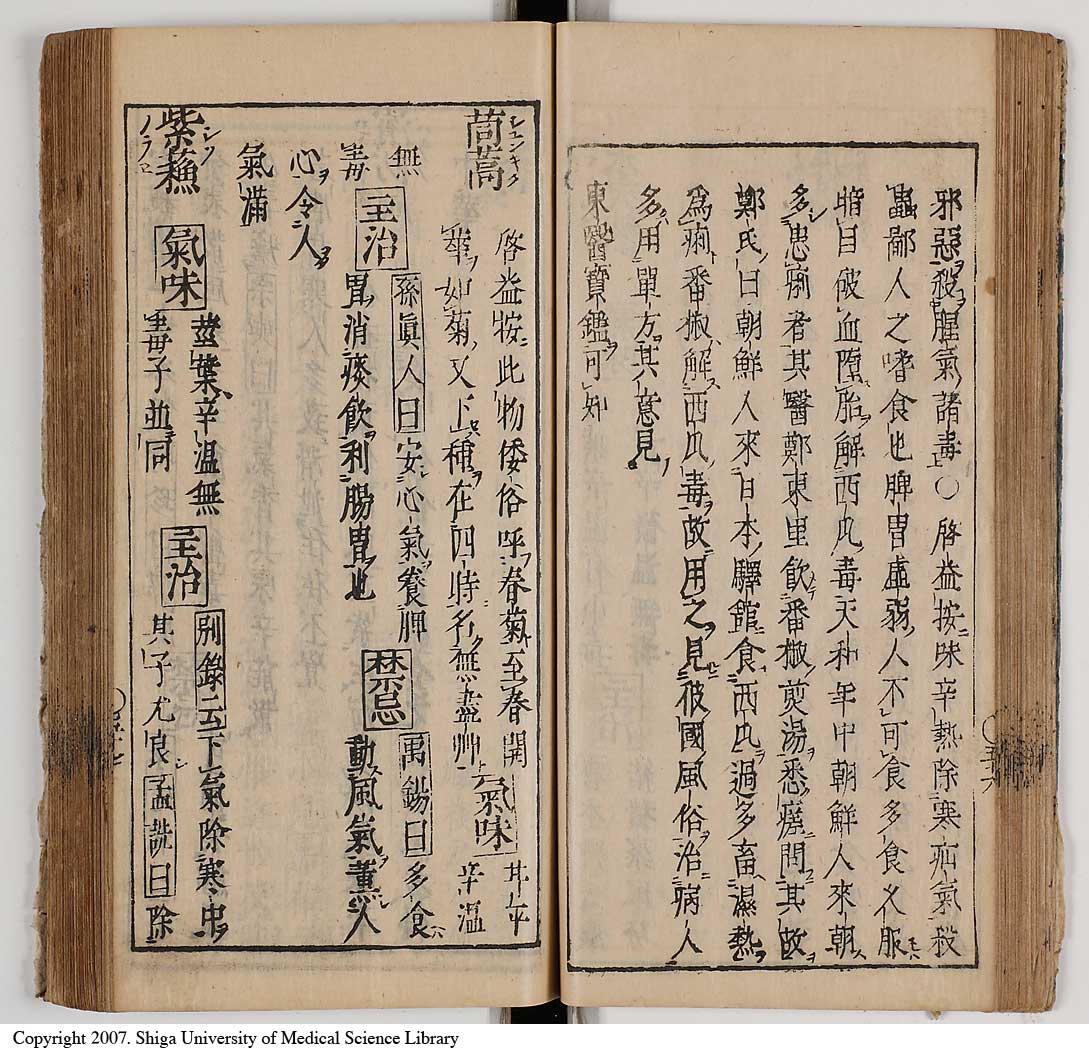 邪惡殺腥氣諸毒○啓益按味辛熱除寒疝氣殺
蟲鄙人之嗜食也脾胃虛弱人不可食多食久服
暗目破血墮胎解西瓜毒天和年中朝鮮人來朝
多患痢者其醫鄭東里飲番椒煎湯悉瘥問其故
鄭氏曰朝鮮人來日本驛館食西瓜過多畜濕熱
爲痢番椒解西瓜毒故用之見彼國風俗治病人
多用單方其意見
東醫寶鑑可知
茼蒿
シュンキク
啓益按此物倭俗呼春菊至春開
華如菊又上種在四時名無盡艸
氣味
甘平
辛温
無
毒
主治
孫眞人曰安心氣養脾
胃消痰飲利腸胃也
禁忌
禹錫曰多食
動風氣薰人
心令人
氣滿
紫蘓
シソ
ノラヱ
氣味
莖葉辛温無
毒子並同
主治
別錄云下氣除寒中
其子尤良孟詵曰除
Copyright 2007. Shiga University of Medical Science Library